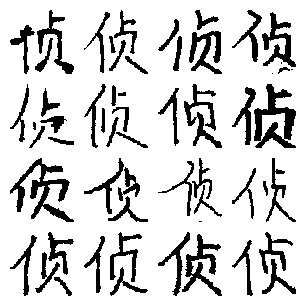 侦侦侦侦
侦侦侦侦
侦侦侦侦
侦侦侦侦